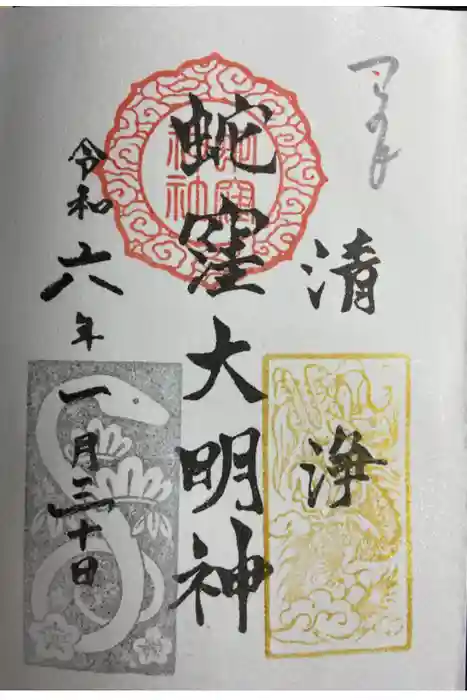 清浄
蛇窪大明神
令和六年一月三十日
蛇窪神社